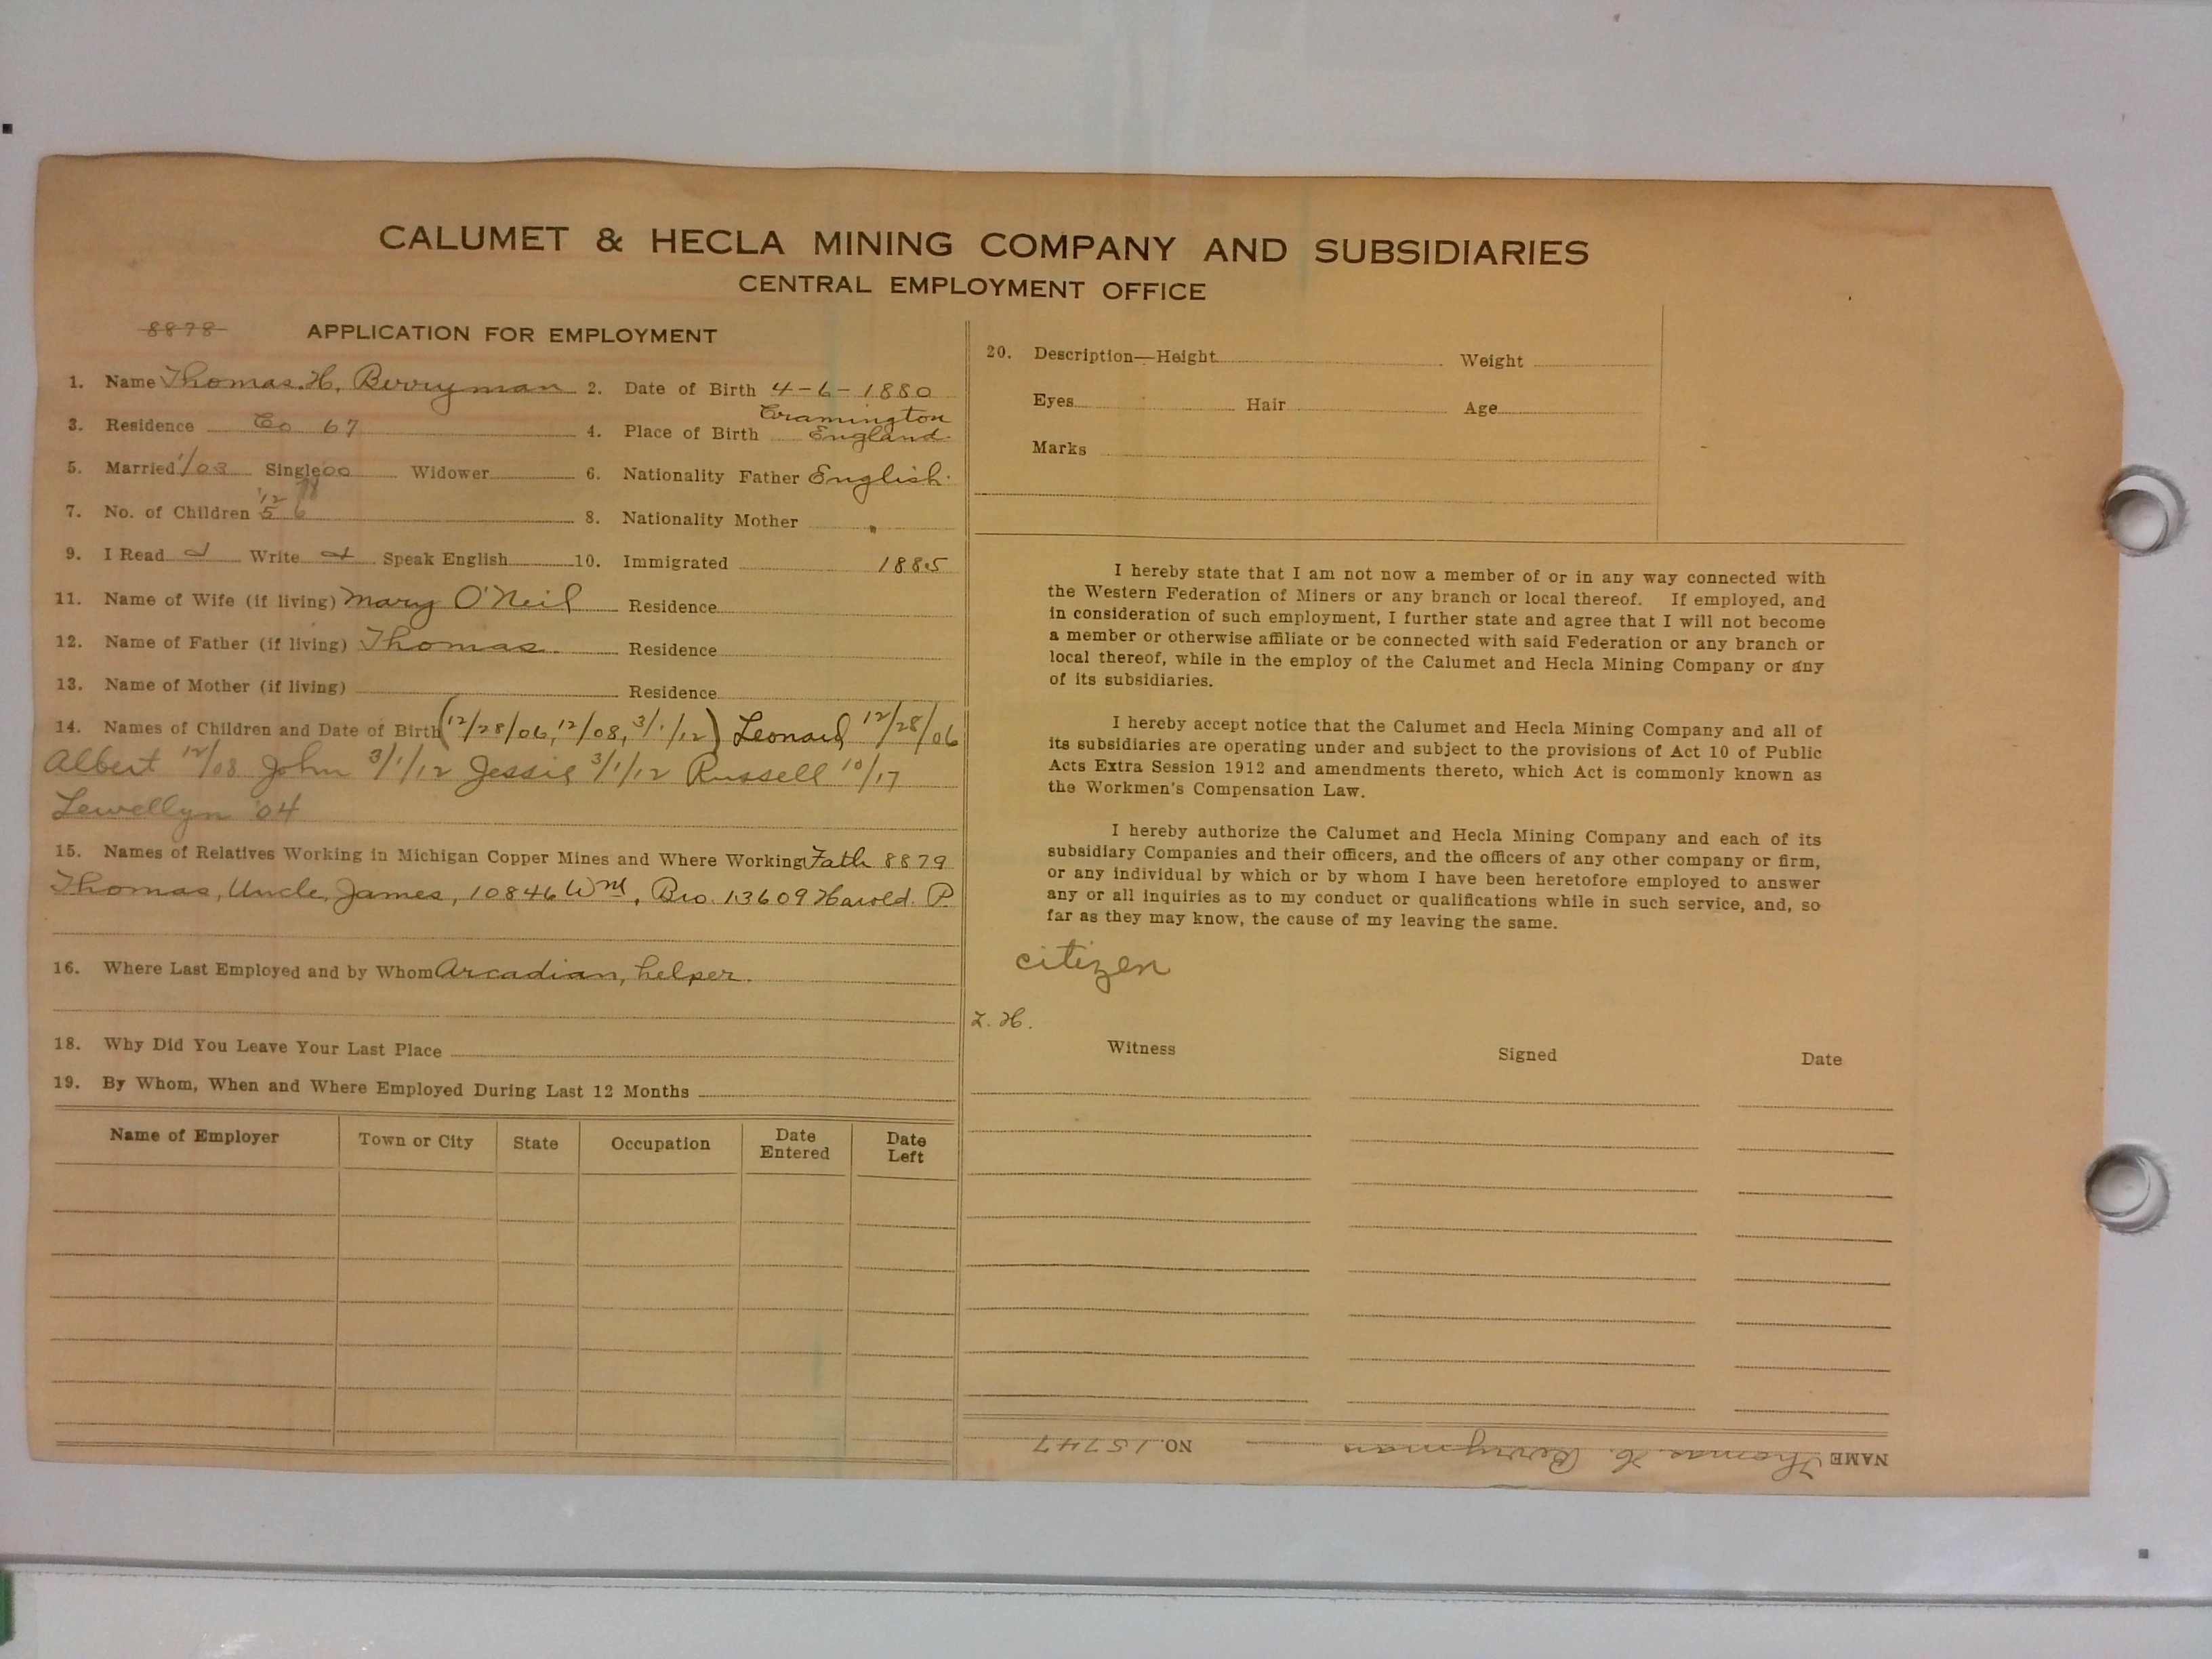 CALUMET & HECLA MINING COMPANY AND SUBSIDIARIES
CENTRAL EMPLOYMENT OFFICE
8878
APPLICATION FOR EMPLOYMENT
1. Name Thomas. H. Berryman 2. Date of Birth 4-6-1880
3. Residence Co 67 4. Place of Birth Cramington England.
5. Married 1/03 Single '00 Widower 6. Nationality Father English.
7. No. of Children '12 5 6 8. Nationality Mother "
9. I Read Write Speak English 10. Immigrated 1885
11. Name of Wife (if living) Mary O'Neil Residence
12. Name of Father (if living) Thomas. Residence
13. Name of Mother (if living) Residence
14. Names of Children and Date of Birth (12/28/06, 12/08, 3/1/12) Leonard 12/28/06
Albert 12/08 John 3/1/12 Jessie 3/1/12 Russell 10/17
Lewellyn '04
15. Names of Relatives Working in Michigan Copper Mines and Where Working Fath 8879
Thomas, Uncle, James, 10846 Wm, Bro. 13609 Harold. P.
16. Where Last Employed and by Whom Arcadian, helper.
18. Why Did You Leave Your Last Place
19. By Whom, When and Where Employed During Last 12 Months
Name of Employer Town or City State Occupation Date Entered Date Left
20. Description—Height Weight
Eyes Hair Age
Marks
I hereby state that I am not now a member of or in any way connected with
the Western Federation of Miners or any branch or local thereof. If employed, and
in consideration of such employment, I further state and agree that I will not become
a member or otherwise affiliate or be connected with said Federation or any branch or
local thereof, while in the employ of the Calumet and Hecla Mining Company or any
of its subsidiaries.
I hereby accept notice that the Calumet and Hecla Mining Company and all of
its subsidiaries are operating under and subject to the provisions of Act 10 of Public
Acts Extra Session 1912 and amendments thereto, which Act is commonly known as
the Workmen's Compensation Law.
I hereby authorize the Calumet and Hecla Mining Company and each of its
subsidiary Companies and their officers, and the officers of any other company or firm,
or any individual by which or by whom I have been heretofore employed to answer
any or all inquiries as to my conduct or qualifications while in such service, and, so
far as they may know, the cause of my leaving the same.
citizen
Z. H.
Witness Signed Date
NAME Thomas. H. Berryman NO. 15747